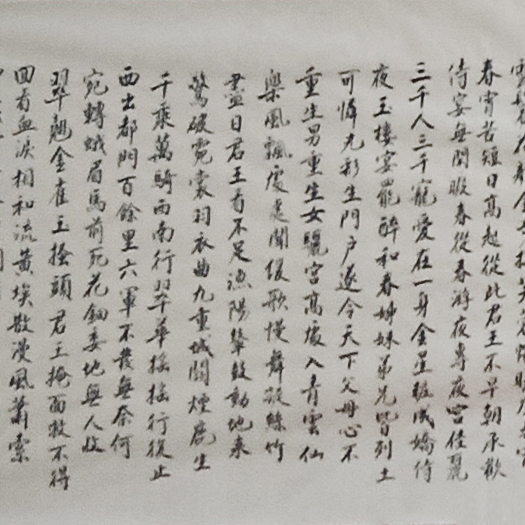 春宵苦短日高起從此君王不早朝承歡
侍宴無閒暇春從春游夜專夜宮佳麗
三千人三千寵愛在一身金屋粧成嬌侍
夜玉樓宴罷醉和春姊妹弟兄皆列土
可憐光彩生門戶遂令天下父母心不
重生男重生女驪宮高處入青雲仙
樂風飄處處聞緩歌慢舞凝絲竹
盡日君王看不足漁陽鼙鼓動地來
驚破霓裳羽衣曲九重城闕煙塵生
千乘萬騎西南行翠華搖搖行復止
西出都門百餘里六軍不發無奈何
宛轉蛾眉馬前死花鈿委地無人收
翠翹金雀玉搔頭君王掩面救不得
回看血淚相和流黃埃散漫風蕭索